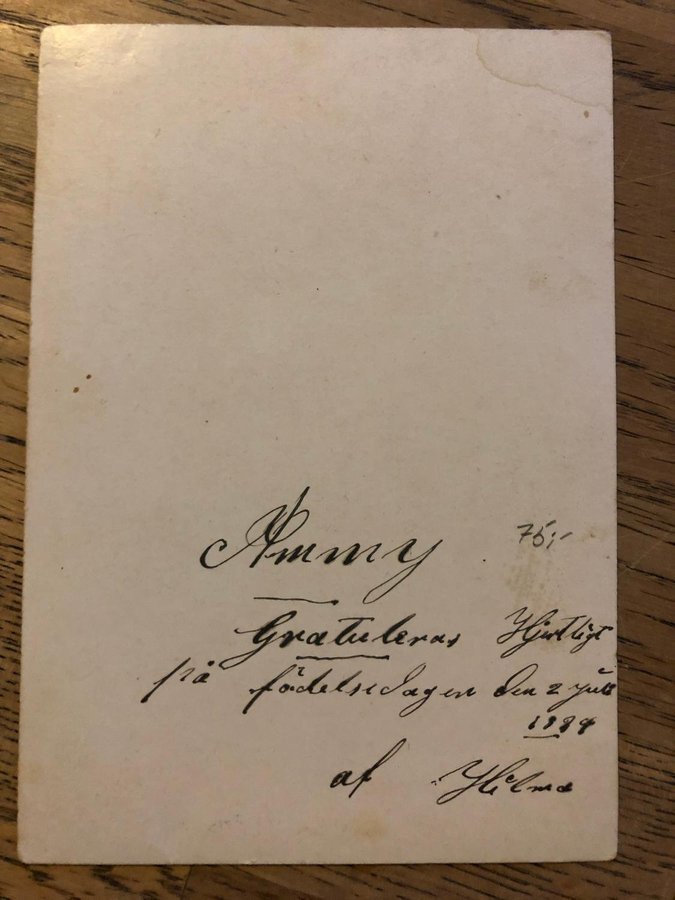 Ammy
75;-
Gratuleras Hjertligt
på födelsedagen den 2 Juli
1884
af Hilma